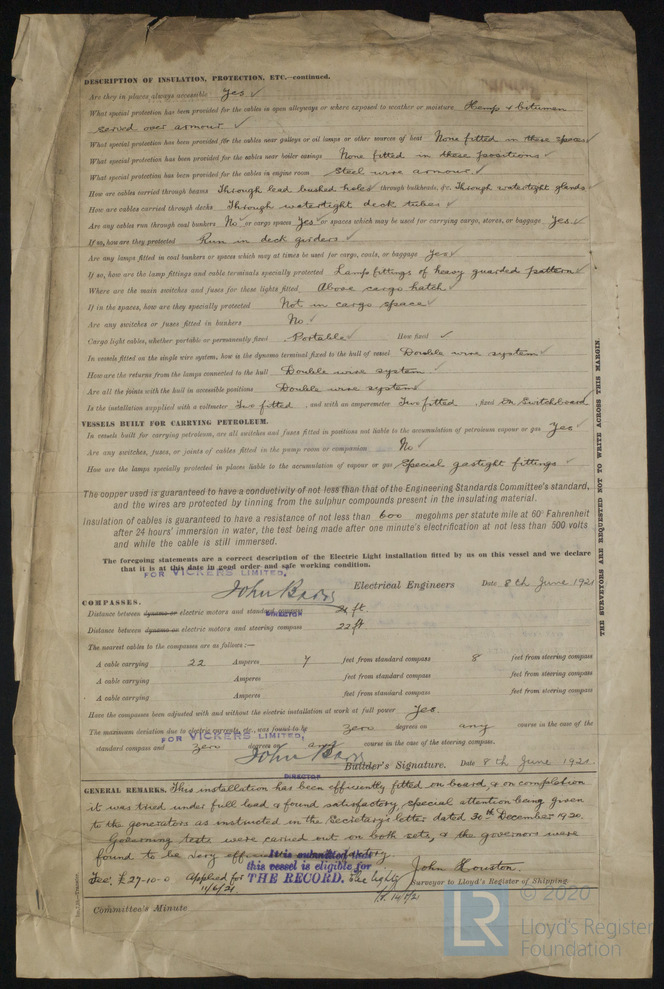 DESCRIPTION OF INSULATION, PROTECTION, ETC.—continued.
Are they in places always accessible Yes ✓
What special protection has been provided for the cables in open alleyways or where exposed to weather or moisture Hemp & bitumen
served over armour ✓
What special protection has been provided for the cables near galleys or oil lamps or other sources of heat None fitted in these spaces ✓
What special protection has been provided for the cables near boiler casings None fitted in these positions ✓
What special protection has been provided for the cables in engine room Steel wire armour ✓
How are cables carried through beams Through lead bushed holes through bulkheads, &c. Through watertight glands
How are cables carried through decks Through watertight deck tubes ✓
Are any cables run through coal bunkers No ✓ or cargo spaces Yes ✓ or spaces which may be used for carrying cargo, stores, or baggage Yes ✓
If so, how are they protected Run in deck girders ✓
Are any lamps fitted in coal bunkers or spaces which may at times be used for cargo, coals, or baggage Yes ✓
If so, how are the lamp fittings and cable terminals specially protected Lamp fittings of heavy guarded pattern ✓
Where are the main switches and fuses for these lights fitted Above cargo hatch ✓
If in the spaces, how are they specially protected Not in cargo space ✓
Are any switches or fuses fitted in bunkers No ✓
Cargo light cables, whether portable or permanently fixed Portable ✓ How fixed ✓
In vessels fitted on the single wire system, how is the dynamo terminal fixed to the hull of vessel Double wire system ✓
How are the returns from the lamps connected to the hull Double wire system ✓
Are all the joints with the hull in accessible positions Double wire system ✓
Is the installation supplied with a voltmeter Two fitted, and with an amperemeter Two fitted, fixed On Switchboard
VESSELS BUILT FOR CARRYING PETROLEUM.
In vessels built for carrying petroleum, are all switches and fuses fitted in positions not liable to the accumulation of petroleum vapour or gas Yes ✓
Are any switches, fuses, or joints of cables fitted in the pump room or companion No ✓
How are the lamps specially protected in places liable to the accumulation of vapour or gas Special gastight fittings ✓
The copper used is guaranteed to have a conductivity of not less than that of the Engineering Standards Committee's standard,
and the wires are protected by tinning from the sulphur compounds present in the insulating material.
Insulation of cables is guaranteed to have a resistance of not less than 600 megohms per statute mile at 60° Fahrenheit
after 24 hours' immersion in water, the test being made after one minute's electrification at not less than 500 volts
and while the cable is still immersed.
The foregoing statements are a correct description of the Electric Light installation fitted by us on this vessel and we declare
that it is at this date in good order and safe working condition.
FOR VICKERS LIMITED,
John Electrical Engineers Date 8th June 1921
DIRECTOR
COMPASSES.
Distance between dynamo or electric motors and standard compass ft.
Distance between dynamo or electric motors and steering compass 22 ft
The nearest cables to the compasses are as follows:—
A cable carrying 22 Amperes 7 feet from standard compass 8 feet from steering compass
A cable carrying Amperes feet from standard compass feet from steering compass
A cable carrying Amperes feet from standard compass feet from steering compass
Have the compasses been adjusted with and without the electric installation at work at full power Yes
The maximum deviation due to electric currents, etc., was found to be zero degrees on any course in the case of the
FOR VICKERS LIMITED,
standard compass and zero degrees on any course in the case of the steering compass.
John Builder's Signature. Date 8th June 1921.
DIRECTOR
GENERAL REMARKS. This installation has been efficiently fitted on board, & on completion
it was tried under full load & found satisfactory, special attention being given
to the generators as instructed in the Secretary's letter dated 30th December 1920.
Governing tests were carried out on both sets, & the governors were
found to be very
It is submitted that
this vessel is eligible for
THE RECORD.
Fee £27-10-0 Applied for
11/6/21
John Houston.
Surveyor to Lloyd's Register of Shipping.
Committee's Minute
THE SURVEYORS ARE REQUESTED NOT TO WRITE ACROSS THIS MARGIN.
© 2020
LR
Lloyd's Register
Foundation